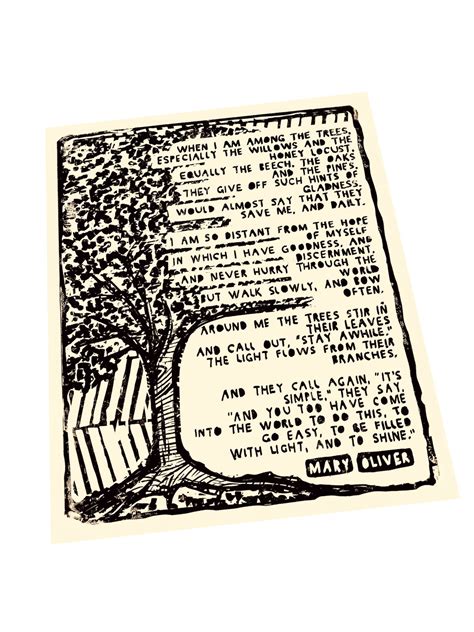 WHEN I AM AMONG THE TREES,
ESPECIALLY THE WILLOWS AND THE
HONEY LOCUST,
EQUALLY THE BEECH, THE OAKS
AND THE PINES,
THEY GIVE OFF SUCH HINTS OF
GLADNESS,
WOULD ALMOST SAY THAT THEY
SAVE ME, AND DAILY.
I AM SO DISTANT FROM THE HOPE
OF MYSELF
IN WHICH I HAVE GOODNESS, AND
DISCERNMENT,
AND NEVER HURRY THROUGH THE
WORLD
BUT WALK SLOWLY, AND BOW
OFTEN.
AROUND ME THE TREES STIR IN
THEIR LEAVES
AND CALL OUT, "STAY AWHILE."
THE LIGHT FLOWS FROM THEIR
BRANCHES.
AND THEY CALL AGAIN, "IT'S
SIMPLE," THEY SAY,
"AND YOU TOO HAVE COME
INTO THE WORLD TO DO THIS, TO
GO EASY, TO BE FILLED
WITH LIGHT, AND TO SHINE."
MARY OLIVER